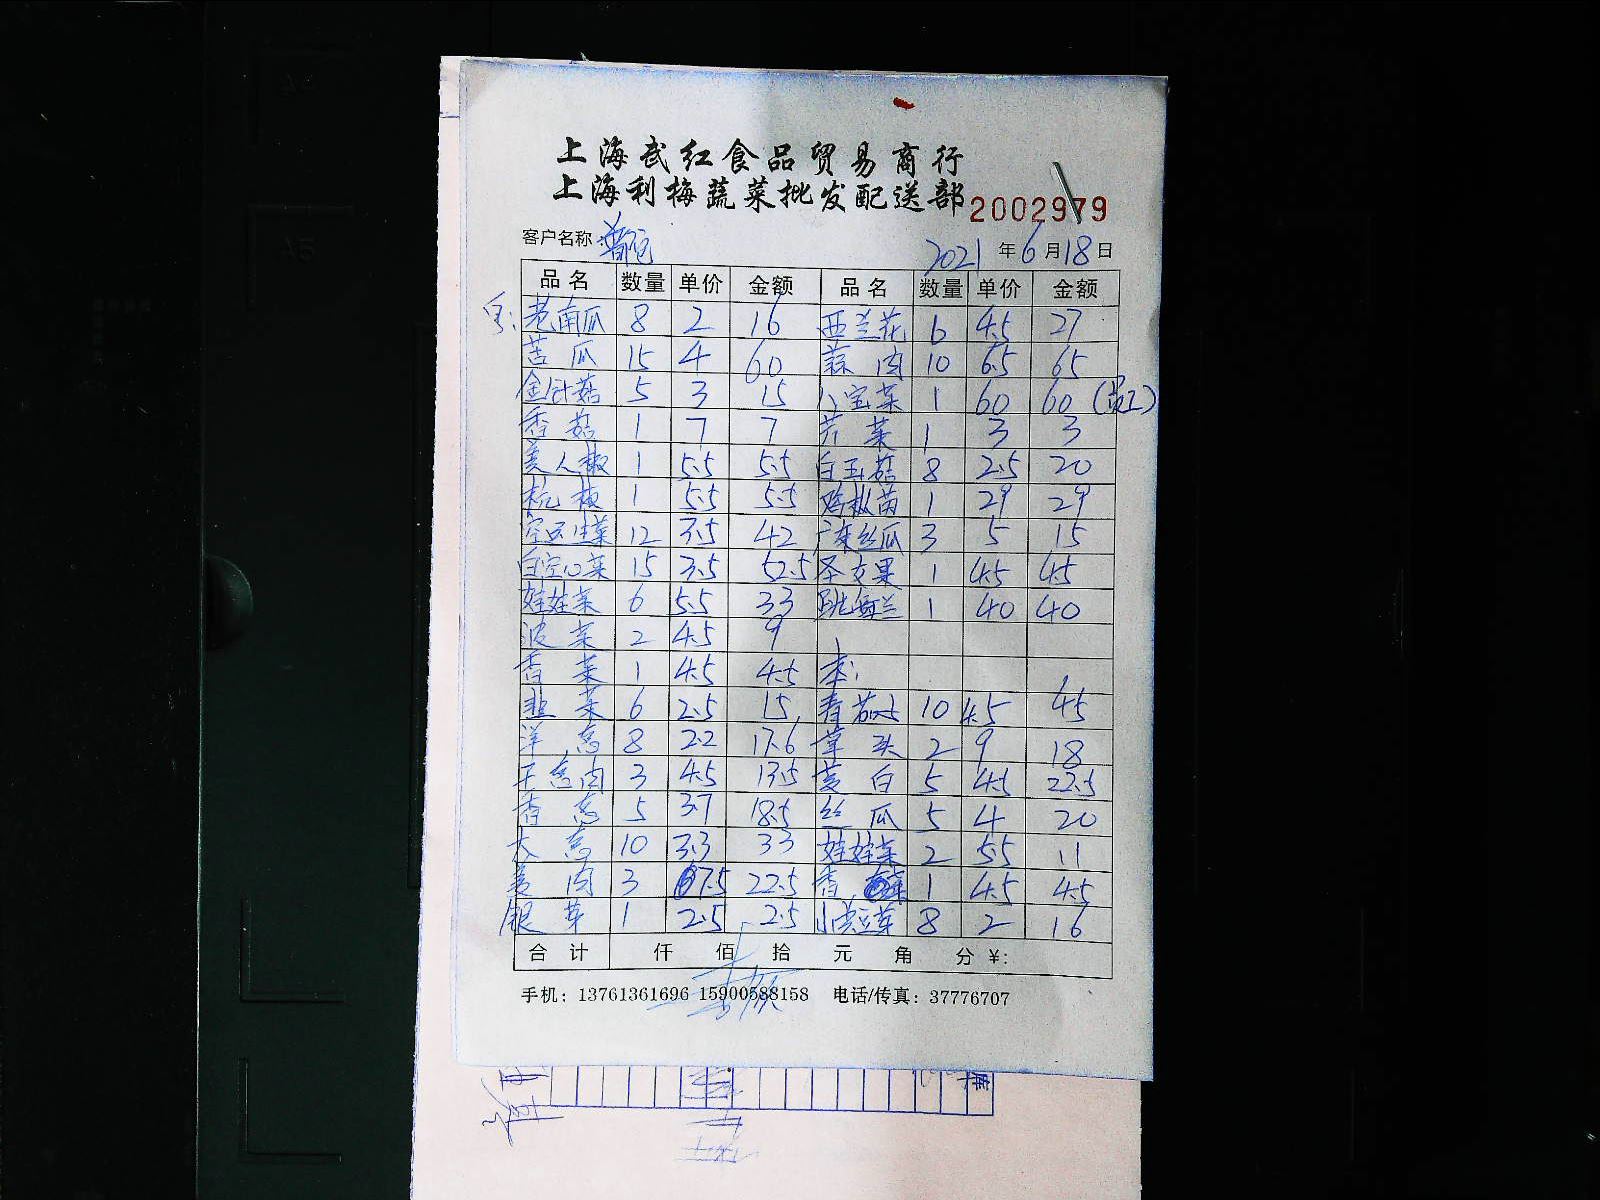 上海武红食品贸易商行
上海利梅蔬菜批发配送部 2002979
客户名称: 2021 年 6 月 18 日
品名 数量 单价 金额 品名 数量 单价 金额
老南瓜 8 2 16 西兰花 6 4.5 27
苦瓜 15 4 60 蒜肉 10 6.5 65
金针菇 5 3 15 八宝菜 1 60 60 (员工)
香菇 1 7 7 芹菜 1 3 3
美人椒 1 5.5 5.5 白玉菇 8 2.5 20
杭椒 1 5.5 5.5 鸡枞菌 1 29 29
生菜 12 3.5 42 广东丝瓜 3 5 15
白空心菜 15 3.5 52.5 圣女果 1 4.5 4.5
娃娃菜 6 5.5 33 1 40 40
波菜 2 4.5 9
香菜 1 4.5 4.5
韭菜 6 2.5 15 青茄 10 4.5 45
洋葱 8 2.2 17.6 草头 2 9 18
干葱肉 3 4.5 13.5 茭白 5 4.5 22.5
香葱 5 3.7 18.5 丝瓜 5 4 20
大葱 10 3.3 33 娃娃菜 2 5.5 11
姜肉 3 7.5 22.5 香菜 1 4.5 4.5
银芽 1 2.5 2.5 小黄豆芽 8 2 16
合计 仟 佰 拾 元 角 分 ¥:
手机: 13761361696 15900588158 电话/传真: 37776707